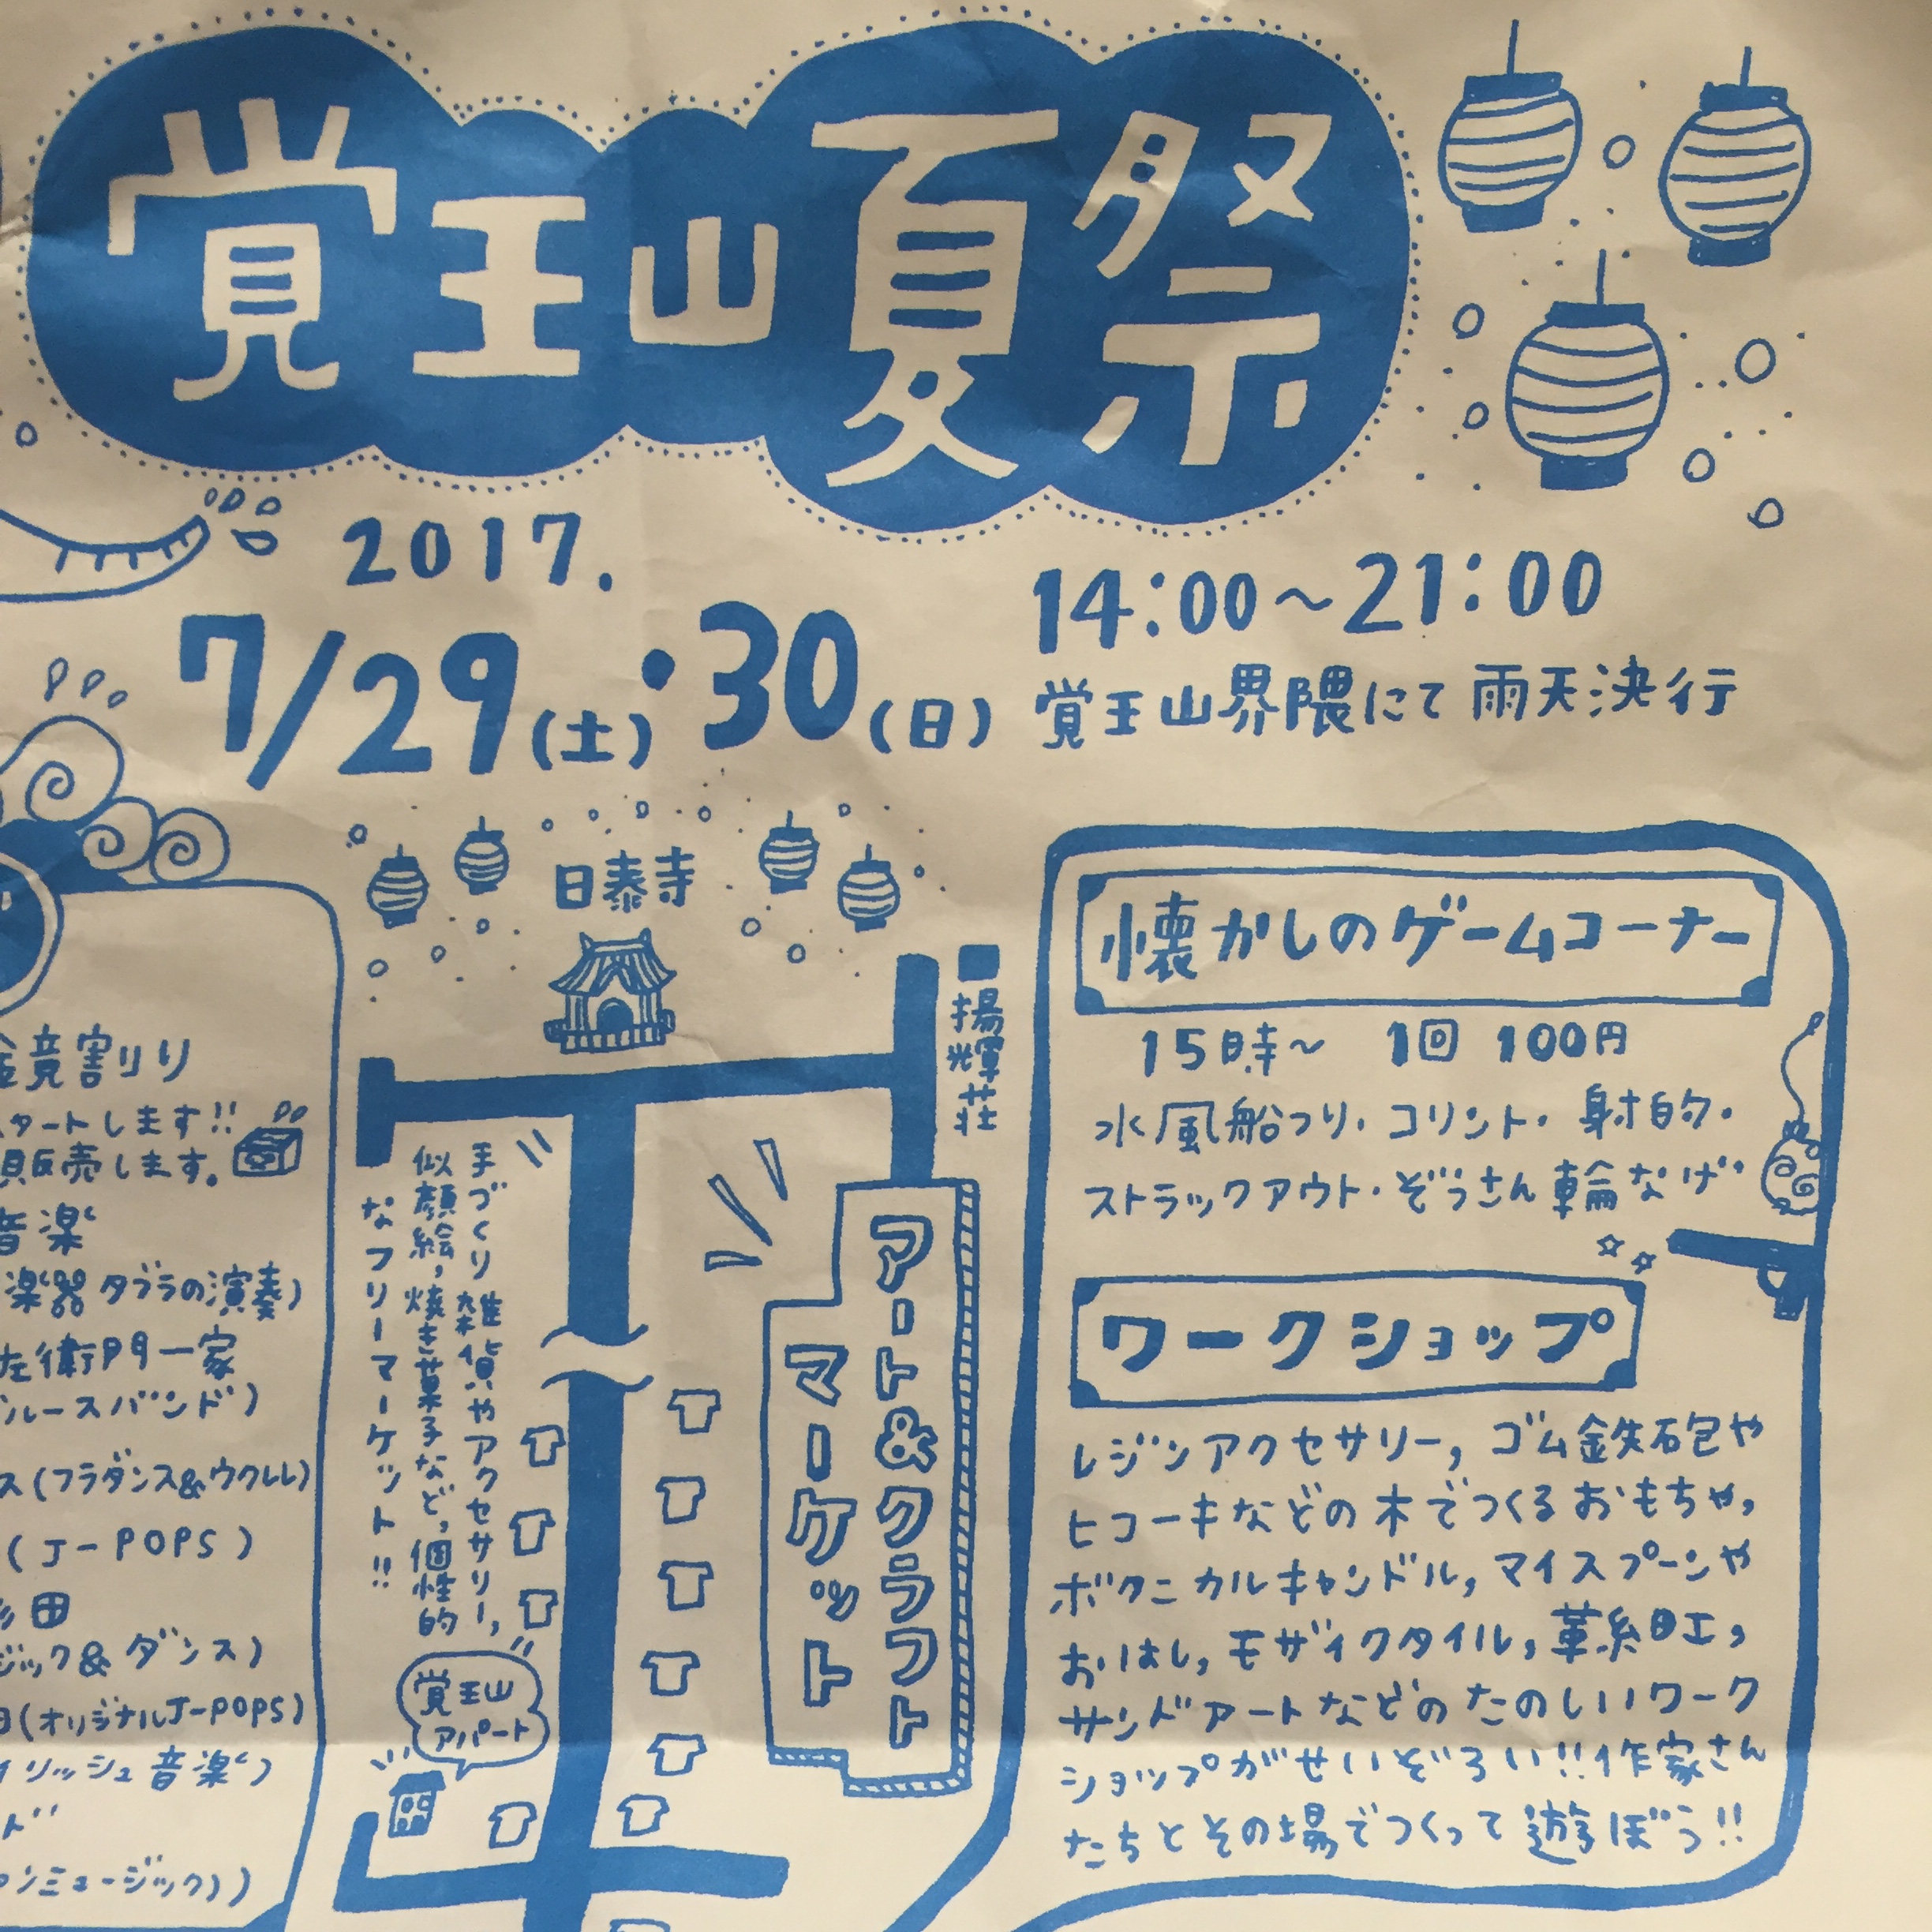 覚王山夏祭
2017.
7/29(土)・30(日)
14:00〜21:00
覚王山界隈にて 雨天決行
日泰寺
揚輝荘
鏡割り
スタートします!!
販売します。
音楽
楽器タブラの演奏)
左衛門一家
ブルースバンド)
ス(フラダンス&ウクレレ)
(J-POPS)
田
ジック&ダンス)
(オリジナルJ-POPS)
イリッシュ音楽)
ド
ンミュージック))
手づくり雑貨やアクセサリー,
似顔絵,焼き菓子など,個性的
なフリーマーケット!!
アート&クラフト
マーケット
覚王山
アパート
懐かしのゲームコーナー
15時〜 1回 100円
水風船つり・コリント・射的・
ストラックアウト・ぞうさん輪なげ
ワークショップ
レジンアクセサリー,ゴム鉄砲や
ヒコーキなどの木でつくるおもちゃ,
ボタニカルキャンドル,マイスプーンや
おはし,モザイクタイル,革細工,
サンドアートなどのたのしいワーク
ショップがせいぞろい!!作家さん
たちとその場でつくって遊ぼう!!